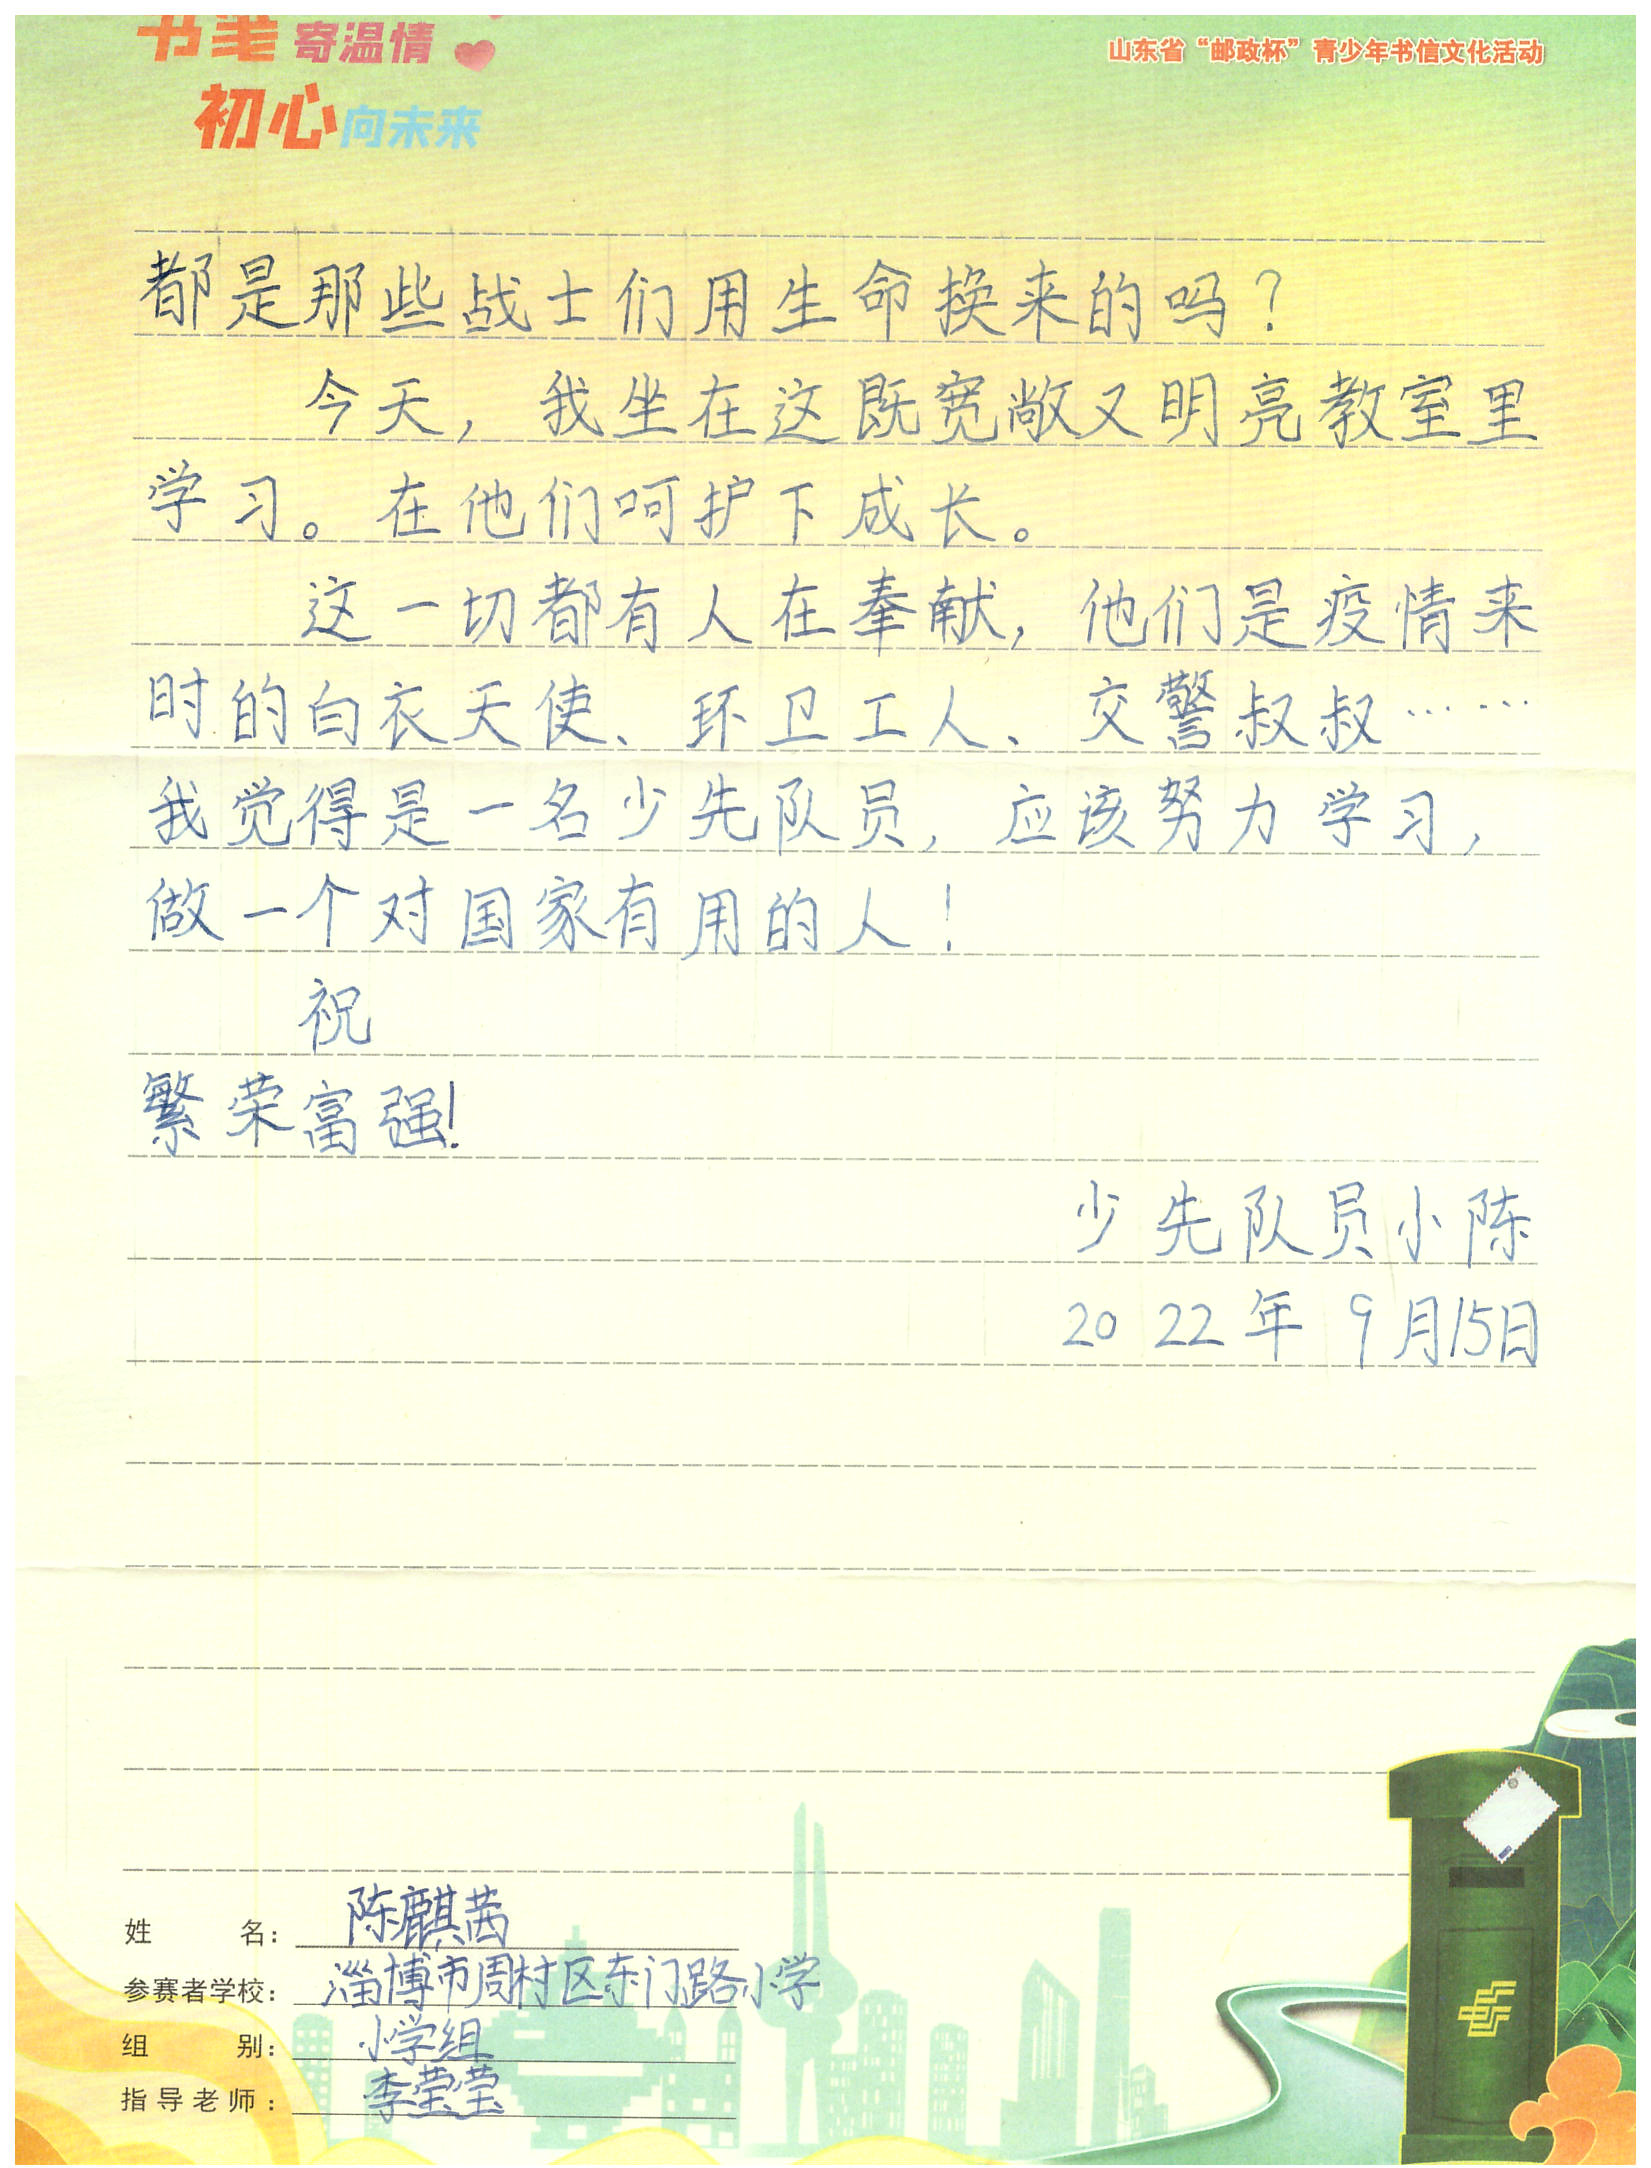 书笔寄温情
山东省“邮政杯”青少年书信文化活动
初心向未来
都是那些战士们用生命换来的吗?
今天,我坐在这既宽敞又明亮教室里
学习。在他们呵护下成长。
这一切都有人在奉献,他们是疫情来
时的白衣天使、环卫工人、交警叔叔……
我觉得是一名少先队员,应该努力学习,
做一个对国家有用的人!
祝
繁荣富强!
少先队员小陈
2022年9月15日
姓 名: 陈麒茜
参赛者学校: 淄博市周村区东门路小学
组 别: 小学组
指导老师: 李莹莹